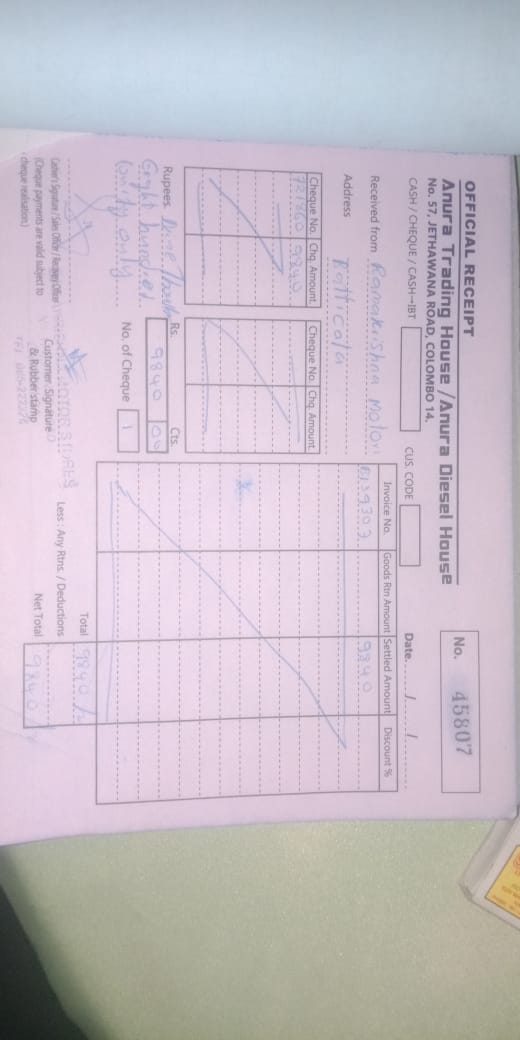 OFFICIAL RECEIPT
Anura Trading House / Anura Diesel House
No. 57, JETHAWANA ROAD, COLOMBO 14.
No. 45807
CASH / CHEQUE / CASH-IBT
CUS. CODE
Date. / /
Received from Ramakrishna Motor
Address Batticola
Cheque No. Chq. Amount Cheque No. Chq. Amount
9840
Invoice No. Goods Rtn Amount Settled Amount Discount %
9840
Rupees Nine Thousand
Eeight hundred
fourty only
Rs. Cts.
9840 00
No. of Cheque 1
Total 9840/-
Less : Any Rtns. / Deductions
Net Total 9840/-
Cashier's Signature / Sales Officer / Recovery Officer
(Cheque payments are valid subject to
cheque realisation.)
MOTOR STORES
Customer Signature
& Rubber stamp